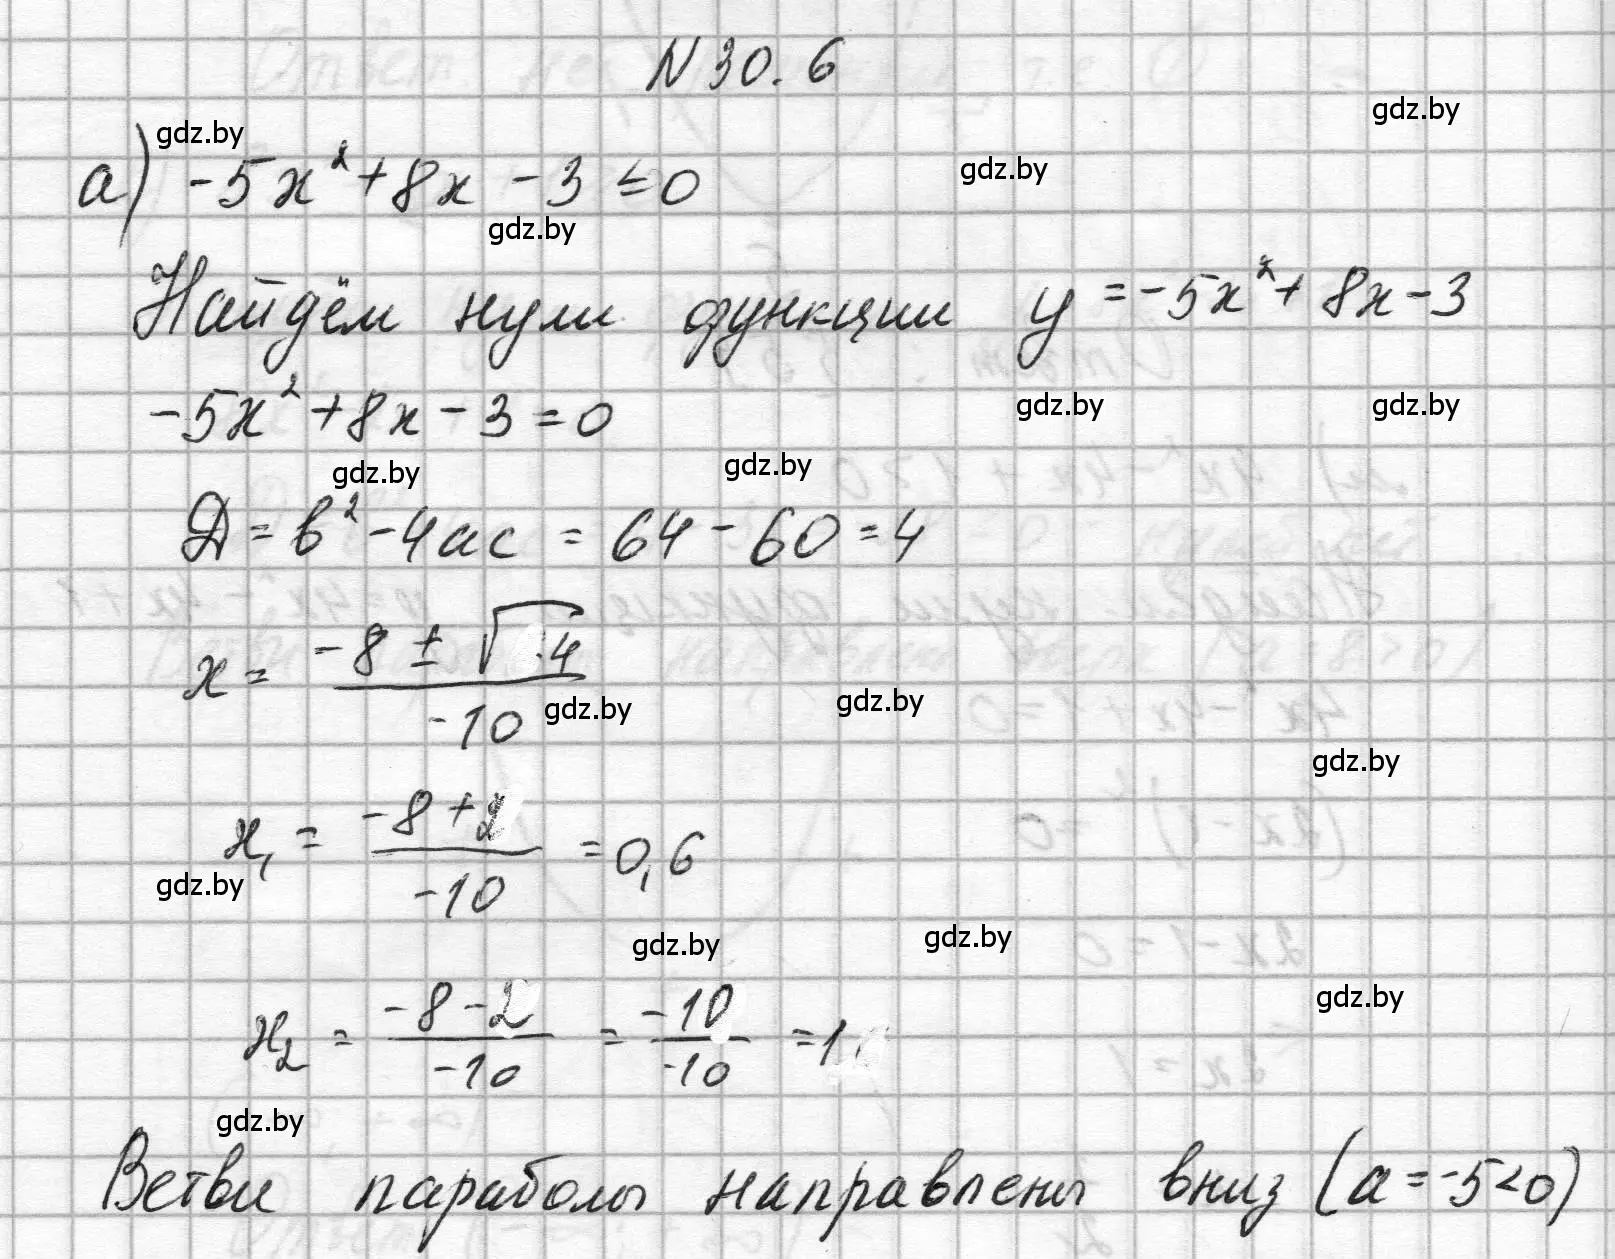 N 30.6
gdz.by
gdz.by
а) -5x² + 8x - 3 ≤ 0
gdz.by
gdz.by
Найдём нули функции y = -5x² + 8x - 3
-5x² + 8x - 3 = 0
gdz.by
gdz.by
gdz.by
gdz.by
Д = b² - 4ac = 64 - 60 = 4
x = (-8 ± √4) / -10
gdz.by
gdz.by
gdz.by
x₁ = (-8 + 2) / -10 = 0,6
gdz.by
gdz.by
gdz.by
gdz.by
x₂ = (-8 - 2) / -10 = -10 / -10 = 1
gdz.by
Ветви параболы направлены вниз (a = -5 < 0)